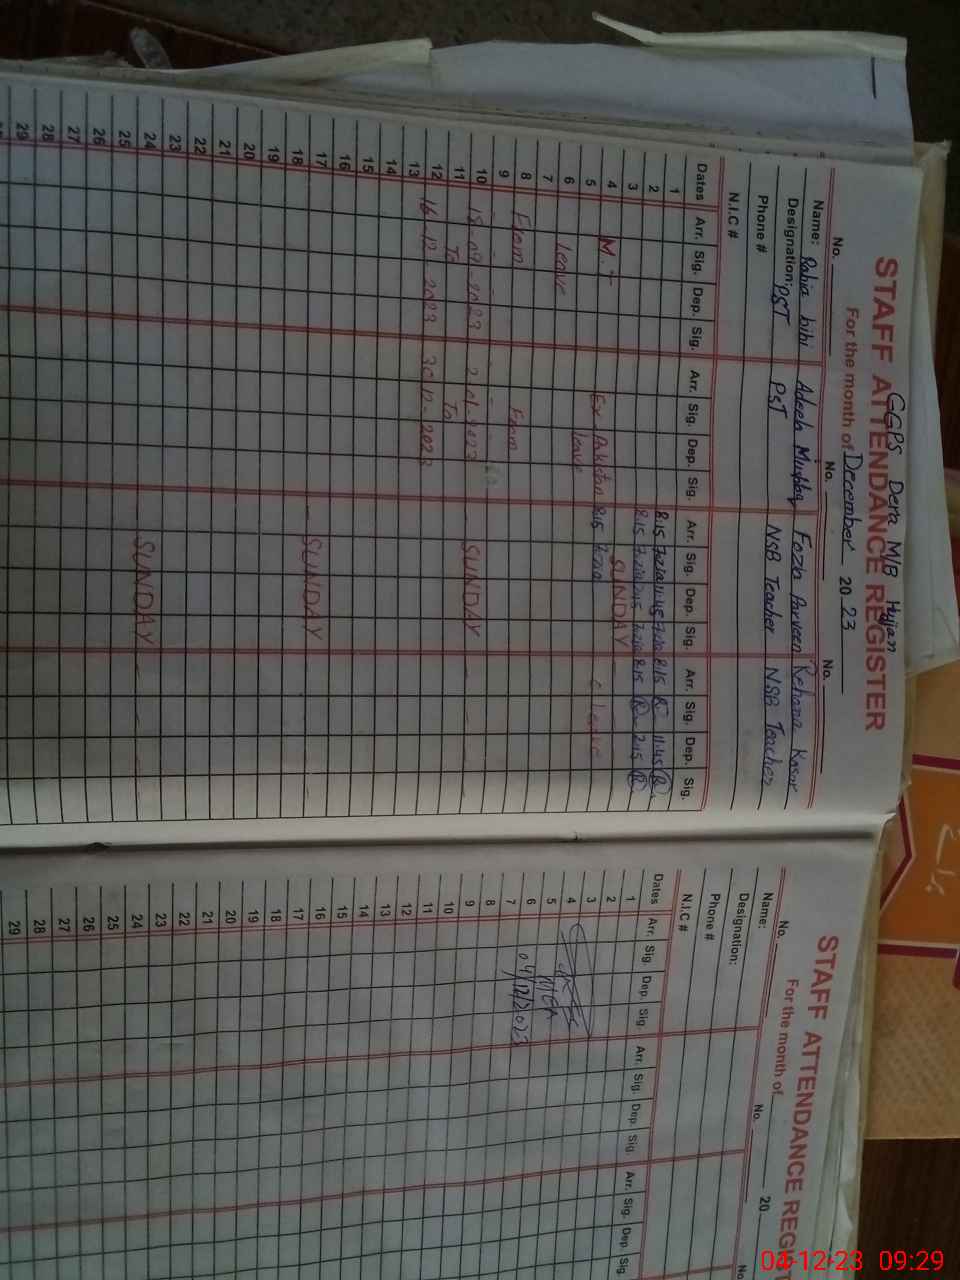 GGPS Dera M/B Hujan
STAFF ATTENDANCE REGISTER
For the month of December 2023
No. No. No.
Name: Rabia bibi Adeeb Mushtaq Fozia Parveen Rehana Kasar
Designation: PST PST NSB Teacher NSB Teacher
Phone #
N.I.C #
Dates Arr. Sig. Dep. Sig. Arr. Sig. Dep. Sig. Arr. Sig. Dep. Sig. Arr. Sig. Dep. Sig.
1 8:15 Fozia 11:45 Fozia 8:15 R. 11:45 R.
2 8:15 Fozia 2:15 Fozia 8:15 R. 2:15 R.
3 SUNDAY
4 M. Ex Pakistan 8:15 Fozia c Leave
5 Leave
6 Leave
7
8 From From
9
10 18-09-2023 SUNDAY
11 To To
12 16-12-2023 30-12-2023
13
14
15
16
17 SUNDAY
18
19
20
21
22
23
24 SUNDAY
25
26
27
28
29
STAFF ATTENDANCE REGIST
For the month of 20
No. No. No
Name:
Designation:
Phone #
N.I.C #
Dates Arr. Sig. Dep. Sig. Arr. Sig. Dep. Sig. Arr. Sig. Dep. Sig.
1
2
3
4
5
6
7 04/12/2023
8
9
10
11
12
13
14
15
16
17
18
19
20
21
22
23
24
25
26
27
28
29
04-12-23 09:29